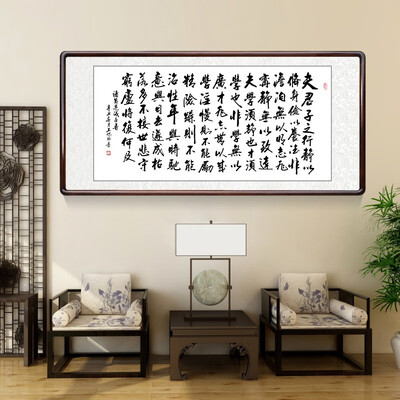 夫君子之行靜以
脩身儉以養德非
澹泊無以明志非
寧靜無以致遠
夫學須靜也才須
學也非學無以
廣才非志無以成
學淫慢則不能勵
精險躁則不能
治性年與時馳
意與日去遂成枯
落多不接世悲守
窮廬將復何及
諸葛亮誡子書